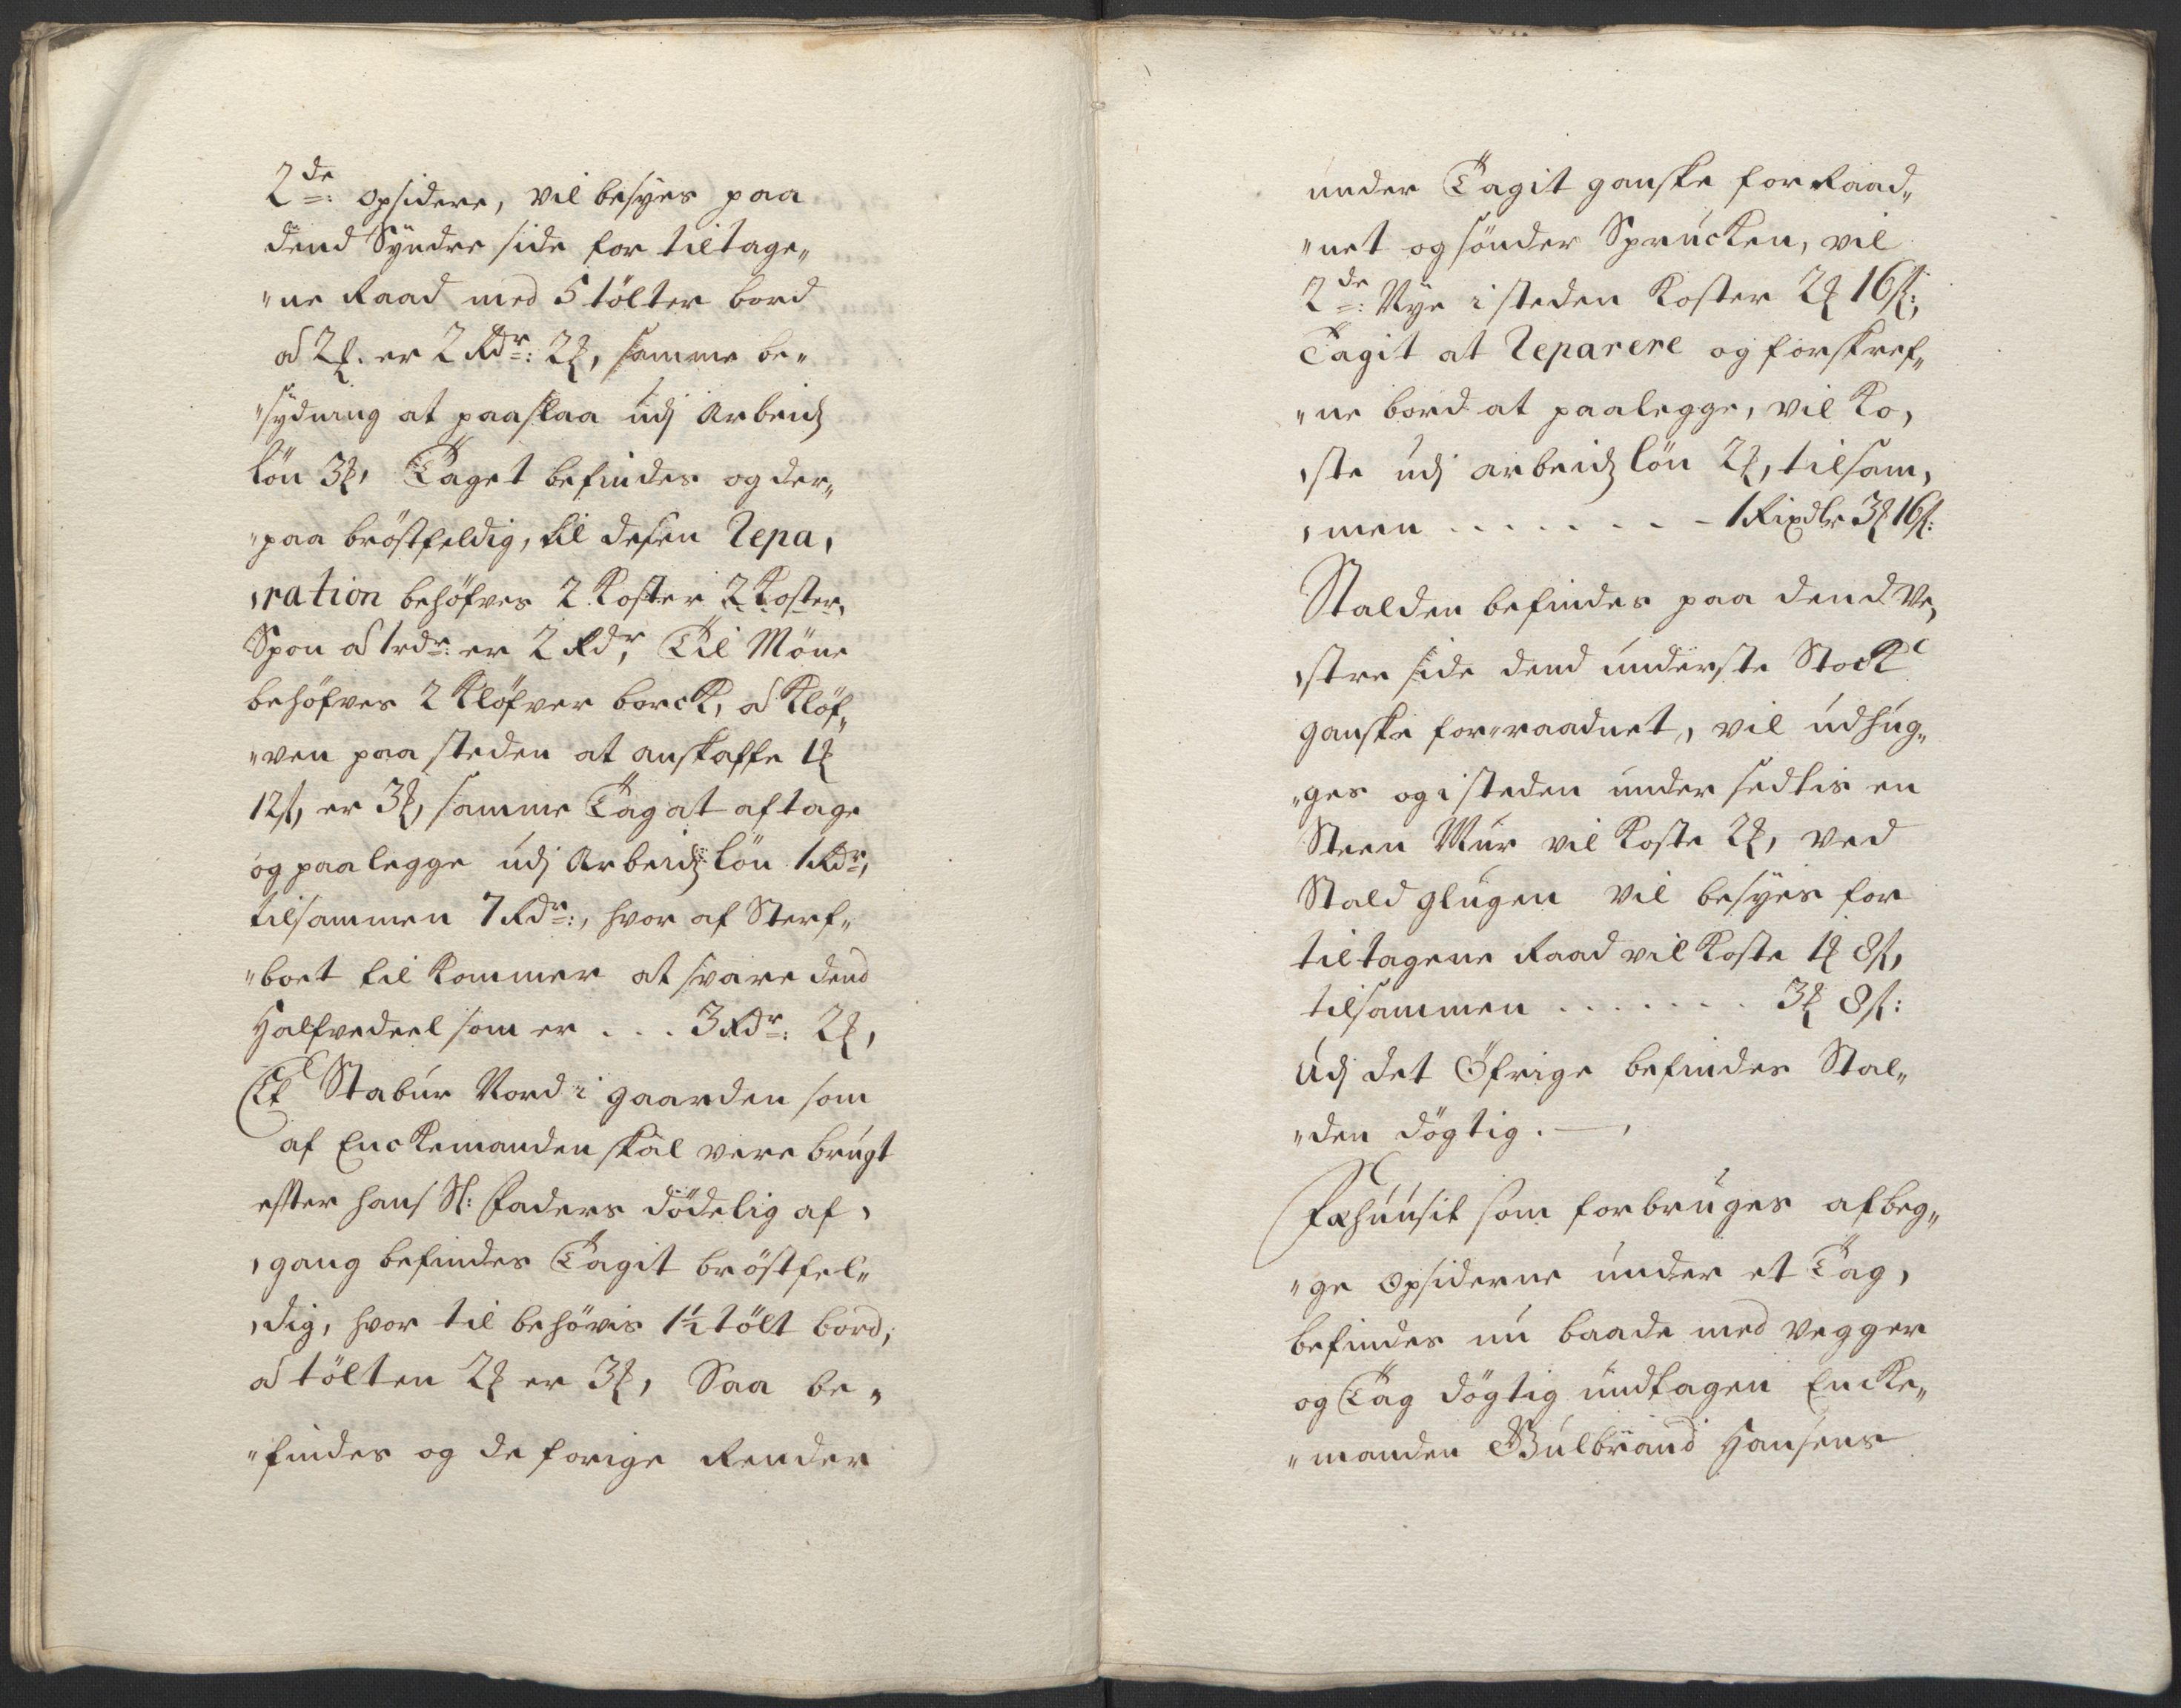 2de: opsidere, vil besÿes paa
dend Syndre side for tiltage„
„ne Raad med 5 tölter bord
a 2ꝣ. er 2 Rdr: 2ꝣ, samme be„
„sydning at paaslaa udj Arbeidꝫ
lön 3ꝣ, Taget befindes og der„
„paa bröstfeldig, til desen Repa,
,ration behöfves 2 Koster 2 Koster,
Spon a 1rdr: er 2 Rdr, Til Möne
behöfves 2 Klöfver borck, a Klöf„
„ven paa steden at anskaffe 1ꝣ
12ꞵ, er 3ꝣ, samme Tag at aftage
og paalegge udj Arbeidꝫ lön 1Rdr,
tilsammen 7 Rdr:, hvor af Sterf„
„boet til kommer at svare dend
Halfvedeel som er . . . 3 Rdr: 2ꝣ,
Et Stabur Nord i gaarden som
af Enckemanden skal vere brugt
efter hans Sl: Faders dödelig af,
,gang befindes Tagit bröstfel„
,dig, hvor til behövis 1½ tölt bord,
a tölten 2ꝣ er 3ꝣ, Saa be„
„findes og de forige Render
under Tagit ganske for Raad„
„net og sönder Sprucken, vil
2de: Nÿe i steden koster 2ꝣ 16ꞵ:,
Tagit at Reparere og forskref„
„ne bord at paalegge, vil ko,
,ste udj arbeidꝫ lön 2ꝣ, tilsam,
,men . . . . . . - - 1 Rixdlr 3ꝣ 16ꞵ:
Stalden befindes paa dend Ve,
,stre side dend underste Stock
ganske forraadnet, vil udhug„
„ges og i steden under settis en
Steen Mur vil koste 2ꝣ, ved
Stald glugen vil besÿes for
tiltagene Raad vil koste 1ꝣ 8ꞵ,
tilsammen . . . . . . . 3ꝣ 8ꞵ:
Udj det Öfrige befindes Stal„
„den dögtig. —,
Fæhuusit som forbruges af beg„
„ge opsiderne under et Tag,
befindes nu baade med vegger
og Tag dögtig undtagen Encke„
„manden Gulbrand Hansens